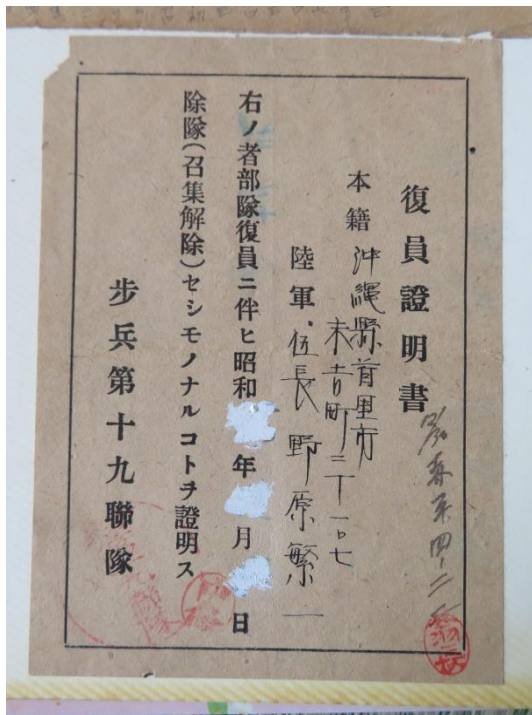 復員證明書
本籍 沖縄縣首里市
末吉町三ノ一〇七
陸軍 伍長 野原繁一
右ノ者部隊復員ニ伴ヒ昭和 年 月 日
除隊(召集解除)セシモノナルコトヲ證明ス
步兵第十九聯隊